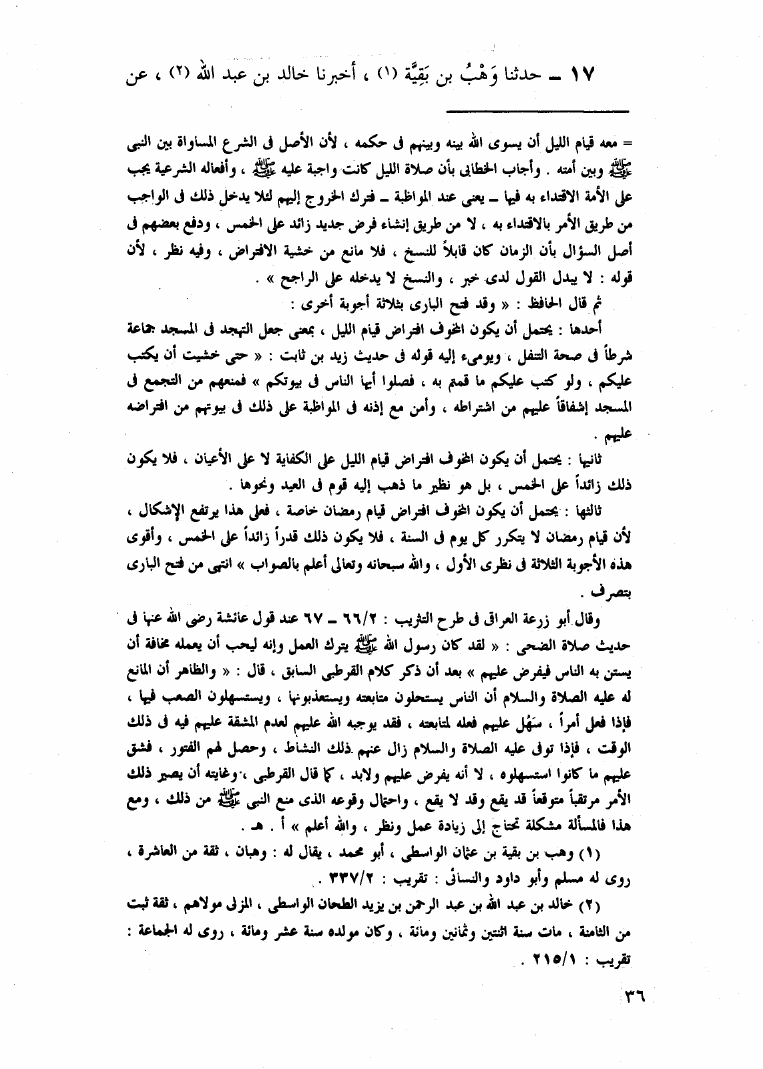 ١٧ ــ حدثنا وَهْبُ بن بَقِيَّة (١) ، أخبرنا خالد بن عبد الله (٢) ، عن
= معه قيام الليل أن يسوى الله بينه وبينهم فى حكمه ، لأن الأصل فى الشرع المساواة بين النبى
ﷺ وبين أمته . وأجاب الخطابى بأن صلاة الليل كانت واجبة عليه ﷺ ، وأفعاله الشرعية يجب
على الأمة الاقتداء به فيها ــ يعنى عند المواظبة ــ فترك الخروج إليهم لئلا يدخل ذلك فى الواجب
من طريق الأمر بالاقتداء به ، لا من طريق إنشاء فرض جديد زائد على الخمس ، ودفع بعضهم فى
أصل السؤال بأن الزمان كان قابلاً للنسخ ، فلا مانع من خشية الافتراض ، وفيه نظر ، لأن
قوله : لا يبدل القول لدى خبر ، والنسخ لا يدخله على الراجح » .
ثم قال الحافظ : « وقد فتح البارى بثلاثة أجوبة أخرى :
أحدها : يحتمل أن يكون المخوف افتراض قيام الليل ، بمعنى جعل التهجد فى المسجد جماعة
شرطاً فى صحة التنفل ، ويومىء إليه قوله فى حديث زيد بن ثابت : « حتى خشيت أن يكتب
عليكم ، ولو كتب عليكم ما قمتم به ، فصلوا أيها الناس فى بيوتكم » فمنعهم من التجمع فى
المسجد إشفاقاً عليهم من اشتراطه ، وأمن مع إذنه فى المواظبة على ذلك فى بيوتهم من افتراضه
عليهم .
ثانيها : يحتمل أن يكون المخوف افتراض قيام الليل على الكفاية لا على الأعيان ، فلا يكون
ذلك زائداً على الخمس ، بل هو نظير ما ذهب إليه قوم فى العيد ونحوها .
ثالثها : يحتمل أن يكون المخوف افتراض قيام رمضان خاصة ، فعلى هذا يرتفع الإشكال ،
لأن قيام رمضان لا يتكرر كل يوم فى السنة ، فلا يكون ذلك قدراً زائداً على الخمس ، وأقوى
هذه الأجوبة الثلاثة فى نظرى الأول ، والله سبحانه وتعالى أعلم بالصواب » انتهى من فتح البارى
بتصرف .
وقال أبو زرعة العراقى فى طرح التثريب : ٦٦/٢ ــ ٦٧ عند قول عائشة رضى الله عنها فى
حديث صلاة الضحى : « لقد كان رسول الله ﷺ يترك العمل وإنه ليحب أن يعمله مخافة أن
يستن به الناس فيفرض عليهم » بعد أن ذكر كلام القرطبى السابق ، قال : « والظاهر أن المانع
له عليه الصلاة والسلام أن الناس يستحلون متابعته ويستعذبونها ، ويستسهلون الصعب فيها ،
فإذا فعل أمراً ، سَهُل عليهم فعله لمتابعته ، فقد يوجبه الله عليهم لعدم المشقة عليهم فيه فى ذلك
الوقت ، فإذا توفى عليه الصلاة والسلام زال عنهم ذلك النشاط ، وحصل لهم الفتور ، فشق
عليهم ما كانوا استسهلوه ، لا أنه يفرض عليهم ولابد ، كما قال القرطبى ، وغايته أن يصير ذلك
الأمر مرتقباً متوقعاً قد يقع وقد لا يقع ، واحتمال وقوعه الذى منع النبى ﷺ من ذلك ، ومع
هذا فالمسألة مشكلة تحتاج إلى زيادة عمل ونظر ، والله أعلم » أ . هـ .
(١) وهب بن بقية بن عثمان الواسطى ، أبو محمد ، يقال له : وهبان ، ثقة من العاشرة ،
روى له مسلم وأبو داود والنسائى : تقريب : ٣٣٧/٢ .
(٢) خالد بن عبد الله بن عبد الرحمن بن يزيد الطحان الواسطى ، المزنى مولاهم ، ثقة ثبت
من الثامنة ، مات سنة اثنتين وثمانين ومائة ، وكان مولده سنة عشر ومائة ، روى له الجماعة :
تقريب : ٢١٥/١ .
٣٦